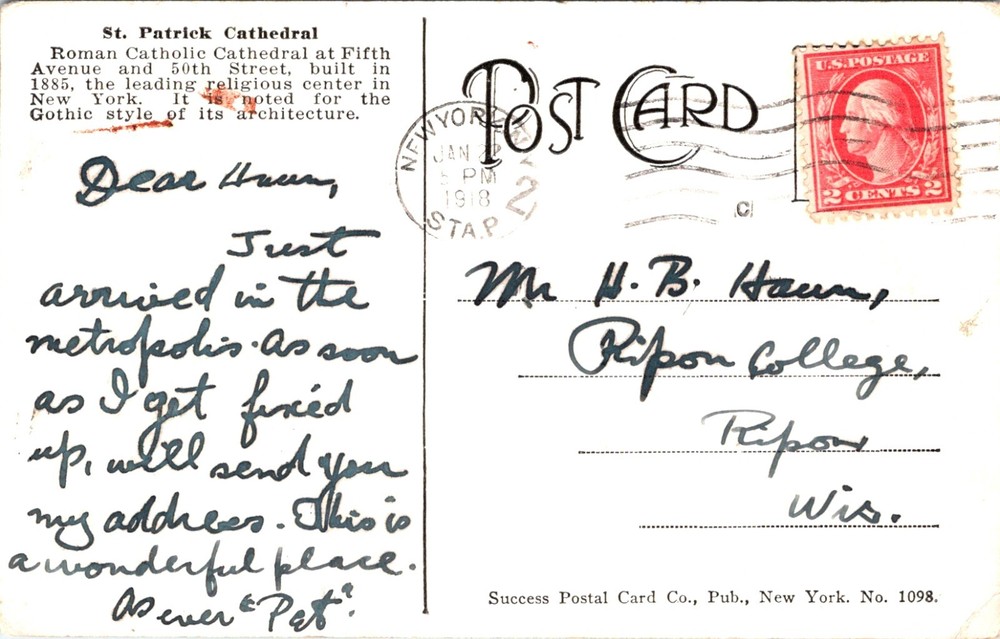 St. Patrick Cathedral
Roman Catholic Cathedral at Fifth
Avenue and 50th Street, built in
1885, the leading religious center in
New York. It is noted for the
Gothic style of its architecture.
POST CARD
NEW YORK, N.Y.
JAN 22
5 PM
1918
STA. P
2
U.S. POSTAGE
2 CENTS 2
C
Dear Haun,
Just
arrived in the
metropolis. As soon
as I get fixed
up, will send you
my address. This is
a wonderful place.
As ever "Pet".
Mr H. B. Haun,
Ripon College,
Ripon
Wis.
Success Postal Card Co., Pub., New York. No. 1098.